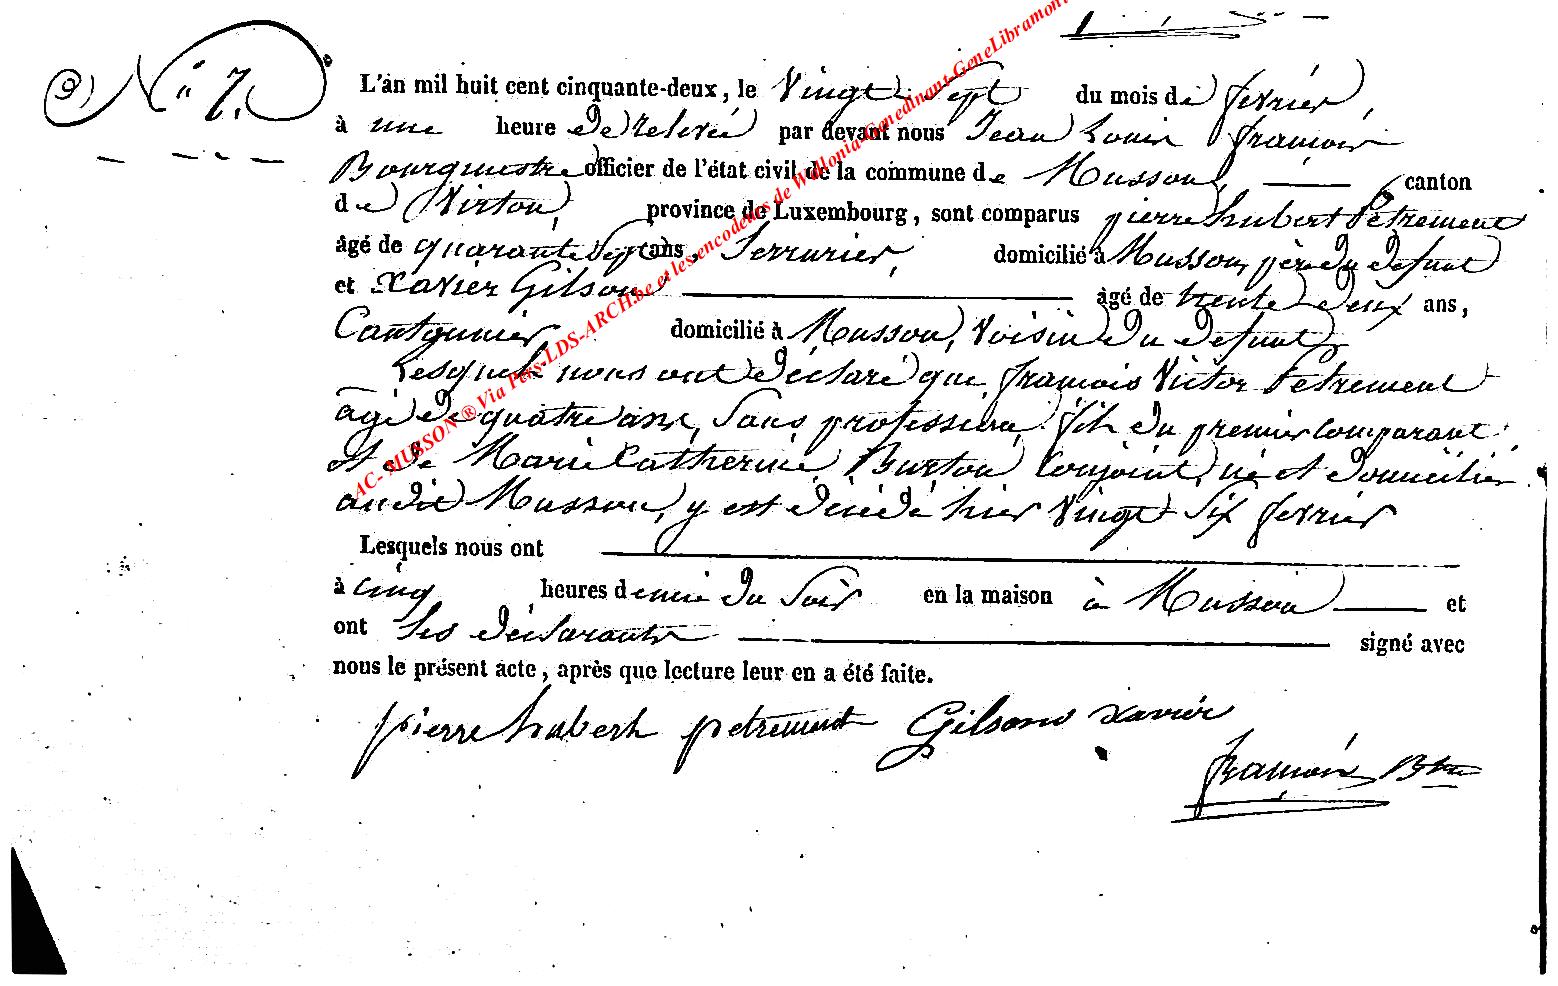 9) N° 7.
L'an mil huit cent cinquante-deux, le Vingt Sept du mois de fevrier,
à une heure de relevée par devant nous Jean Louis françois
Bourgmestre officier de l'état civil de la commune de Musson, canton
de Virton, province de Luxembourg, sont comparus pierre hubert Petrement
âgé de quarante Sept ans, Serrurier, domicilié à Musson, père du defunt
et Xavier Gilson, âgé de trente deux ans,
Cantonnier domicilié à Musson, Voisin du defunt,
Lesquels nous ont déclaré que françois Victor Petrement
agé de quatre ans, Sans profession, fils du premier Comparant
et de Marie Catherine Burton Conjoint, né et domicilié
audit Musson, y est décédé hier Vingt Six fevrier
Lesquels nous ont
à cinq heures demie du Soir en la maison à Musson et
ont les déclarants signé avec
nous le présent acte, après que lecture leur en a été faite.
pierre hubert petrement Gilson Xavier
françois B
AC- MUSSON ® Via Pers-LDS-ARCH.be et les encodeurs de Wallonia-Genedinant-GeneLibramont